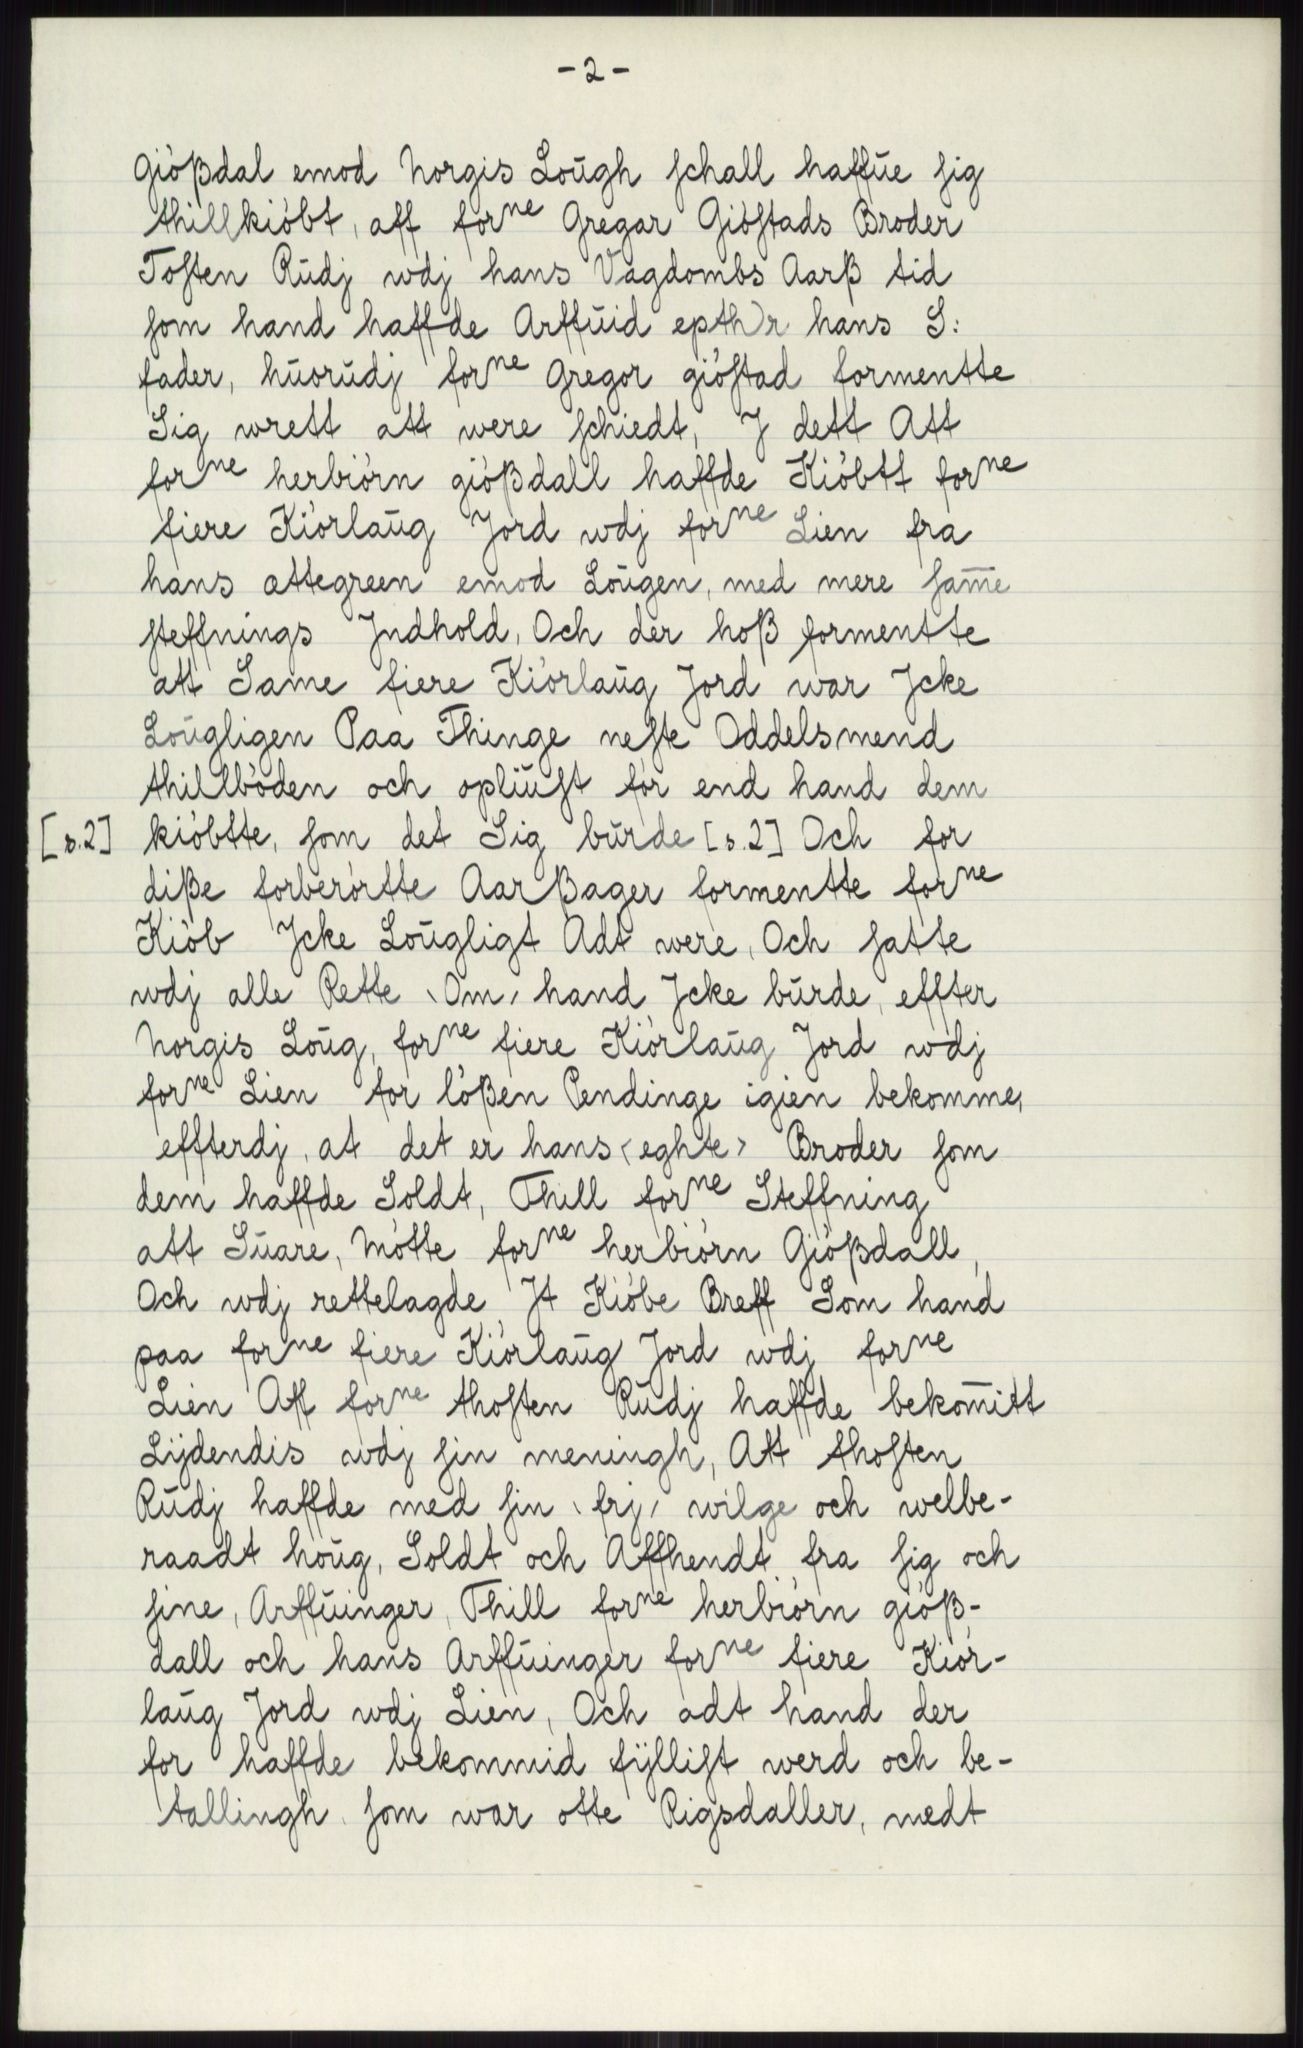 -2-
Giößdal emod Norgis Lough schall haffue sig
thillkiöbt, aff forne Gregar Giöstads Broder
Tosten Rudj wdj hans Vagdombs Aarß tid
som hand haffde Arffuid epth)r hans S:
fader, huorudj forne Gregor giöstad formentte
Sig wrett att were schiedt, J dett Att
forne herbiörn giößdall haffde Kiöbtt forne
fiere Kiörlaug Jord wdj forne Lien fra
hans ættegreen emod Lougen, med mere same
steffnings Jndhold, Och der hoß formentte
att Same fiere Kiörlaug Jord war Jcke
Lougligen Paa Thinge neste Oddelsmend
thillböden och opliust för end hand dem
[s.2] kiöbtte, som det Sig burde [s.2] Och for
diße forberörtte Aarßager formentte forne
Kiöb Jcke Lougligt Adt were, Och satte
wdj alle Rette \Om/ hand Jcke burde, effter
Norgis Loug, forne fiere Kiörlaug Jord wdj
forne Lien for lößen Pendinge igien bekomme,
effterdj, at det er hans <eghte> Broder som
dem haffde Soldt, Thill forne Steffning
att Suare, Mötte forne herbiörn Giößdall,
Och wdj rettelagde Jt Kiöbe Breff Som hand
paa forne fiere Kiörlaug Jord wdj forne
Lien Aff forne thosten Rudj haffde bekomitt
Lijdendis wdj sin meningh, Att thosten
Rudj haffde med sin \frj/ wilge och welbe-
raadt houg, Soldt och Affhendt fra sig och
sine, Arffuinger, Thill forne herbiörn giöß-
dall och hans Arffuinger forne fiere Kiör-
laug Jord wdj Lien, Och adt hand der
for haffde bekommid fÿllist werd och be-
tallingh som war otte Rigsdaller, medt